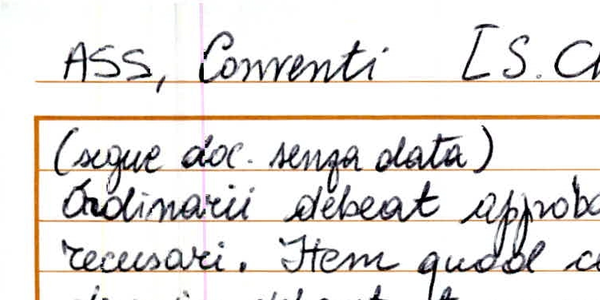 ASS, Conventi [S. Ch
(segue doc. senza data)
Ordinarii debeat approba
recusari. Item quod c